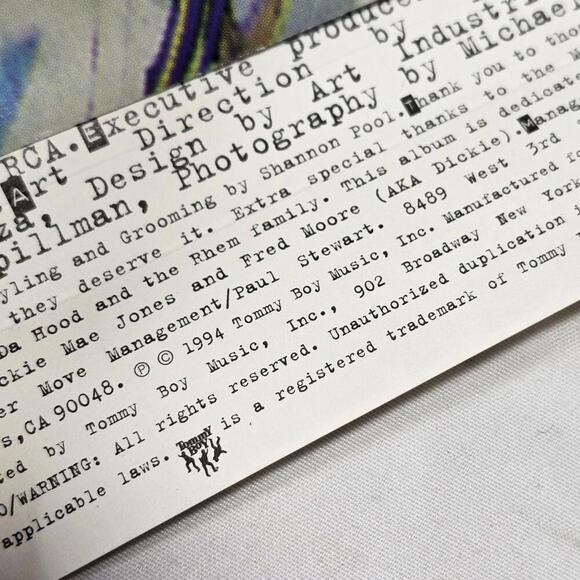 RCA. Executive produce
Art Direction by
za, Design by Art Industri
pillman, Photography by Michael
yling and Grooming by Shannon Pool. Thank you to tho
they deserve it. Extra special thanks to the M
Da Hood and the Rhem family. This album is dedicate
ckie Mae Jones and Fred Moore (AKA Dickie). Manag
er Move Management/Paul Stewart. 8489 West 3rd
s, CA 90048. ℗ © 1994 Tommy Boy Music, Inc. Manufactured fo
ted by Tommy Boy Music, Inc., 902 Broadway New York
O/WARNING: All rights reserved. Unauthorized duplication
applicable laws. Tommy Boy is a registered trademark of Tommy